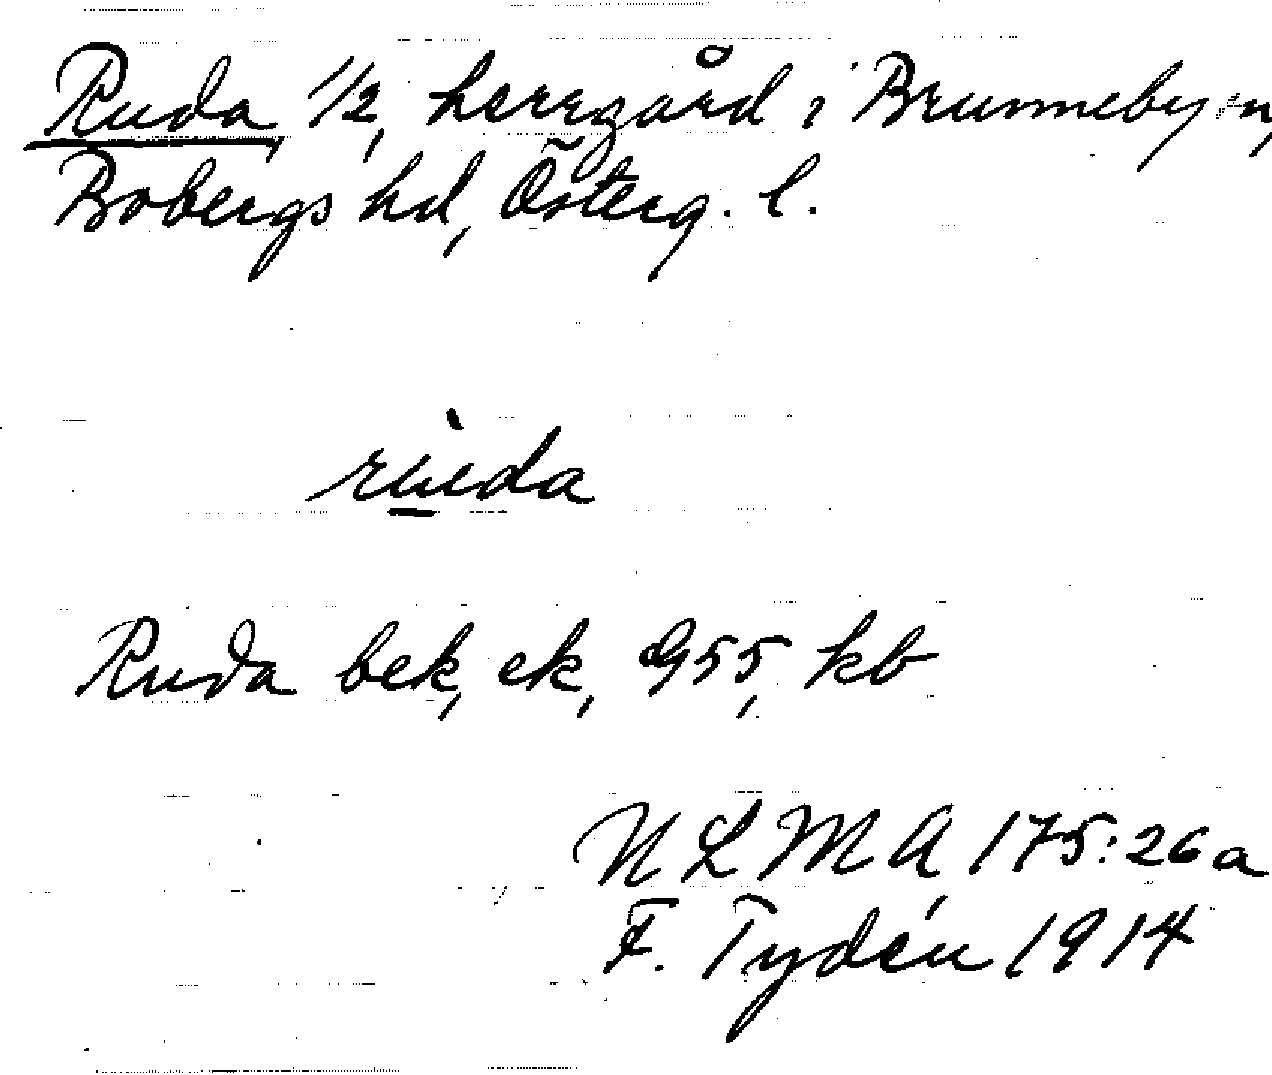 Ruda, 1/2, herrgård i Brunneby sn,
Bobergs hd, Österg. l.
rùda
Ruda bek, ek, G55, kb
NLMA 175:26a
F. Tydén 1914